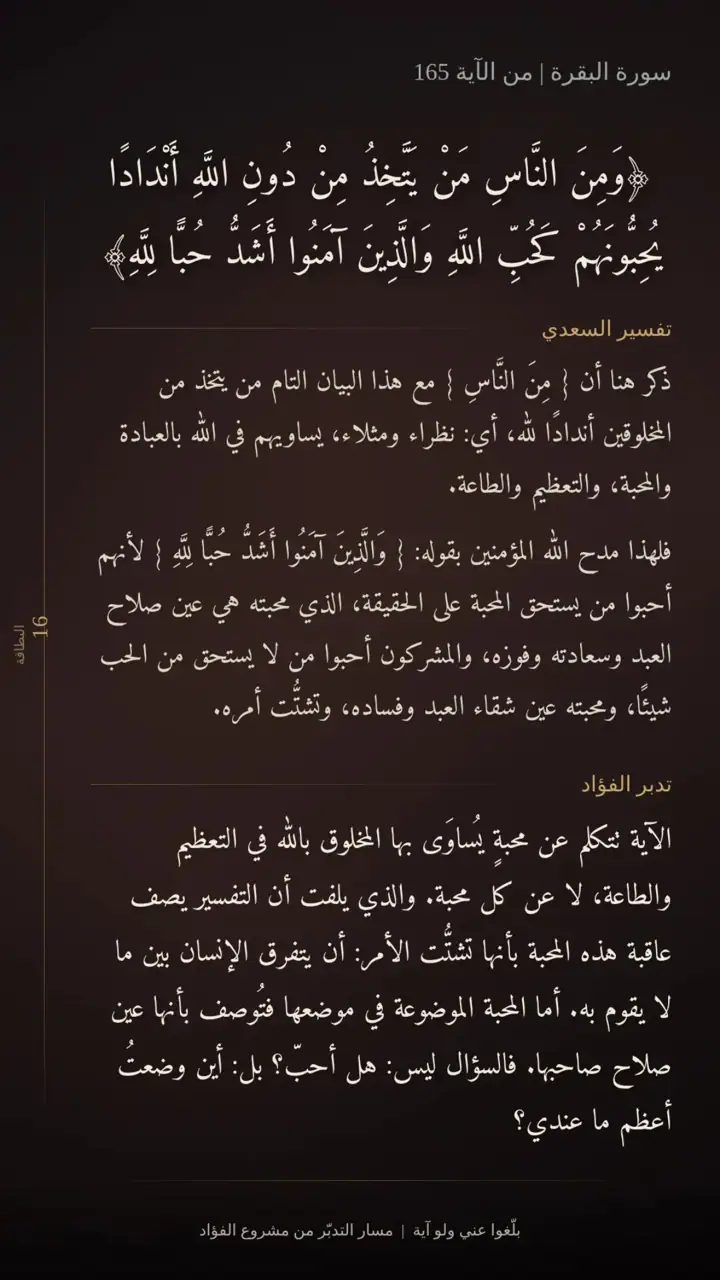 سورة البقرة | من الآية 165
﴿وَمِنَ النَّاسِ مَنْ يَتَّخِذُ مِنْ دُونِ اللَّهِ أَنْدَادًا
يُحِبُّونَهُمْ كَحُبِّ اللَّهِ وَالَّذِينَ آمَنُوا أَشَدُّ حُبًّا لِلَّهِ﴾
تفسير السعدي
ذكر هنا أن { مِنَ النَّاسِ } مع هذا البيان التام من يتخذ من
المخلوقين أندادًا لله، أي: نظراء ومثلاء، يساويهم في الله بالعبادة
والمحبة، والتعظيم والطاعة.
فلهذا مدح الله المؤمنين بقوله: { وَالَّذِينَ آمَنُوا أَشَدُّ حُبًّا لِلَّهِ } لأنهم
أحبوا من يستحق المحبة على الحقيقة، الذي محبته هي عين صلاح
العبد وسعادته وفوزه، والمشركون أحبوا من لا يستحق من الحب
شيئًا، ومحبته عين شقاء العبد وفساده، وتشتُّت أمره.
تدبر الفؤاد
الآية تتكلم عن محبةٍ يُساوَى بها المخلوق بالله في التعظيم
والطاعة، لا عن كل محبة. والذي يلفت أن التفسير يصف
عاقبة هذه المحبة بأنها تشتُّت الأمر: أن يتفرق الإنسان بين ما
لا يقوم به. أما المحبة الموضوعة في موضعها فتُوصف بأنها عين
صلاح صاحبها. فالسؤال ليس: هل أحبّ؟ بل: أين وضعتُ
أعظم ما عندي؟
البطاقة
16
بلّغوا عني ولو آية | مسار التدبّر من مشروع الفؤاد